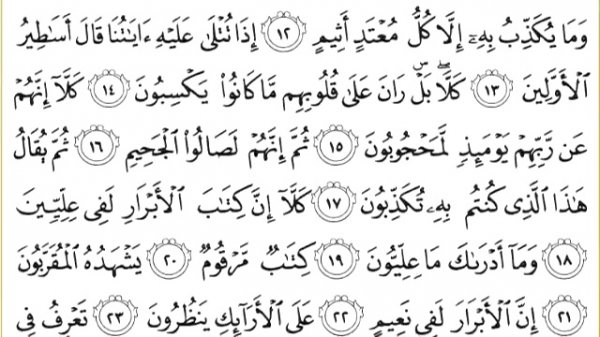 وَمَا يُكَذِّبُ بِهِۦٓ إِلَّا كُلُّ مُعۡتَدٍ أَثِيمٍ ١٢ إِذَا تُتۡلَىٰ عَلَيۡهِ ءَايَٰتُنَا قَالَ أَسَٰطِيرُ
ٱلۡأَوَّلِينَ ١٣ كَلَّاۖ بَلۡۜ رَانَ عَلَىٰ قُلُوبِهِم مَّا كَانُواْ يَكۡسِبُونَ ١٤ كَلَّآ إِنَّهُمۡ
عَن رَّبِّهِمۡ يَوۡمَئِذٖ لَّمَحۡجُوبُونَ ١٥ ثُمَّ إِنَّهُمۡ لَصَالُواْ ٱلۡجَحِيمِ ١٦ ثُمَّ يُقَالُ
هَٰذَا ٱلَّذِي كُنتُم بِهِۦ تُكَذِّبُونَ ١٧ كَلَّآ إِنَّ كِتَٰبَ ٱلۡأَبۡرَارِ لَفِي عِلِّيِّينَ
١٨ وَمَآ أَدۡرَىٰكَ مَا عِلِّيُّونَ ١٩ كِتَٰبٞ مَّرۡقُومٞ ٢٠ يَشۡهَدُهُ ٱلۡمُقَرَّبُونَ
٢١ إِنَّ ٱلۡأَبۡرَارَ لَفِي نَعِيمٍ ٢٢ عَلَى ٱلۡأَرَآئِكِ يَنظُرُونَ ٢٣ تَعۡرِفُ فِي